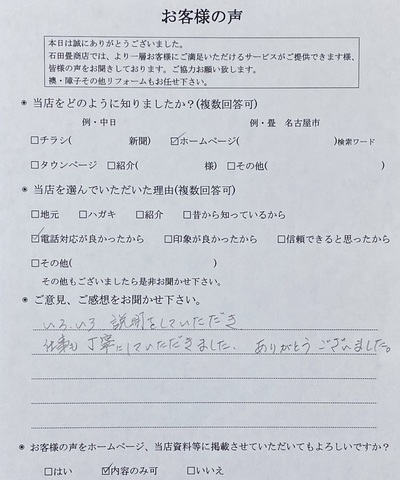 お客様の声
本日は誠にありがとうございました。
石田畳商店では、より一層お客様にご満足いただけるサービスがご提供できます様、
皆様の声をお聞きしております。ご協力お願い致します。
襖・障子その他リフォームもお任せ下さい。
◉ 当店をどのように知りましたか?(複数回答可)
例・中日 例・畳 名古屋市
□チラシ( 新聞) ☑ホームページ( )検索ワード
□タウンページ □紹介( 様) □その他( )
◉ 当店を選んでいただいた理由(複数回答可)
□地元 □ハガキ □紹介 □昔から知っているから
☑電話対応が良かったから □印象が良かったから □信頼できると思ったから
□その他( )
その他もございましたら是非お聞かせ下さい。
◉ ご意見、ご感想をお聞かせ下さい。
いろいろ 説明をしていただき
仕事も 丁寧にしていただきました、 ありがとう ございました。
◉ お客様の声をホームページ、当店資料等に掲載させていただいてもよろしいですか?
□はい ☑内容のみ可 □いいえ